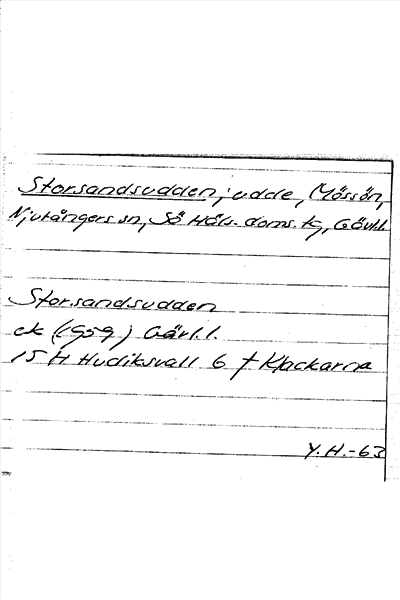 Storsandsudden; udde, Mössön,
Njutångers sn, Sö Häls. doms. tg, Gävl.l.
Storsandsudden
ek (1959) Gävl.l.
15 H Hudiksvall 6 f Klackarna
Y.H.-63